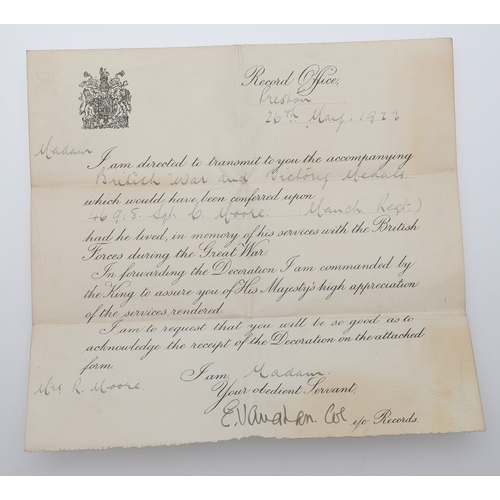 Record Office,
Preston
26th May. 1922
Madam
I am directed to transmit to you the accompanying
British War and Victory Medals
which would have been conferred upon
4698. Sgt. C. Moore. (Manch. Regt.)
had he lived, in memory of his services with the British
Forces during the Great War:
In forwarding the Decoration I am commanded by
the King to assure you of His Majesty's high appreciation
of the services rendered.
I am to request that you will be so good as to
acknowledge the receipt of the Decoration on the attached
form.
I am, Madam.
Mrs R. Moore
Your obedient Servant,
E. Vaughan. Col
i/c Records.